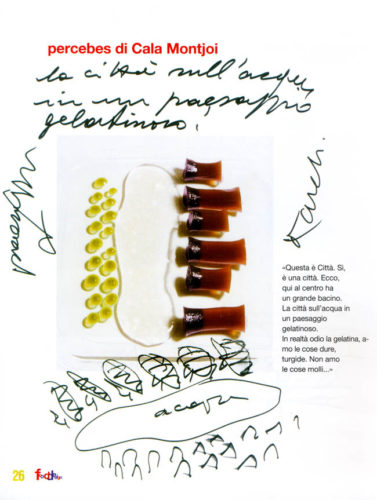 percebes di Cala Montjoi
la città sull'acqua
in un paesaggio
gelatinoso.
«Questa è Città. Sì,
è una città. Ecco,
qui al centro ha
un grande bacino.
La città sull'acqua in
un paesaggio
gelatinoso.
In realtà odio la gelatina, a-
mo le cose dure,
turgide. Non amo
le cose molli...»
acqua
26